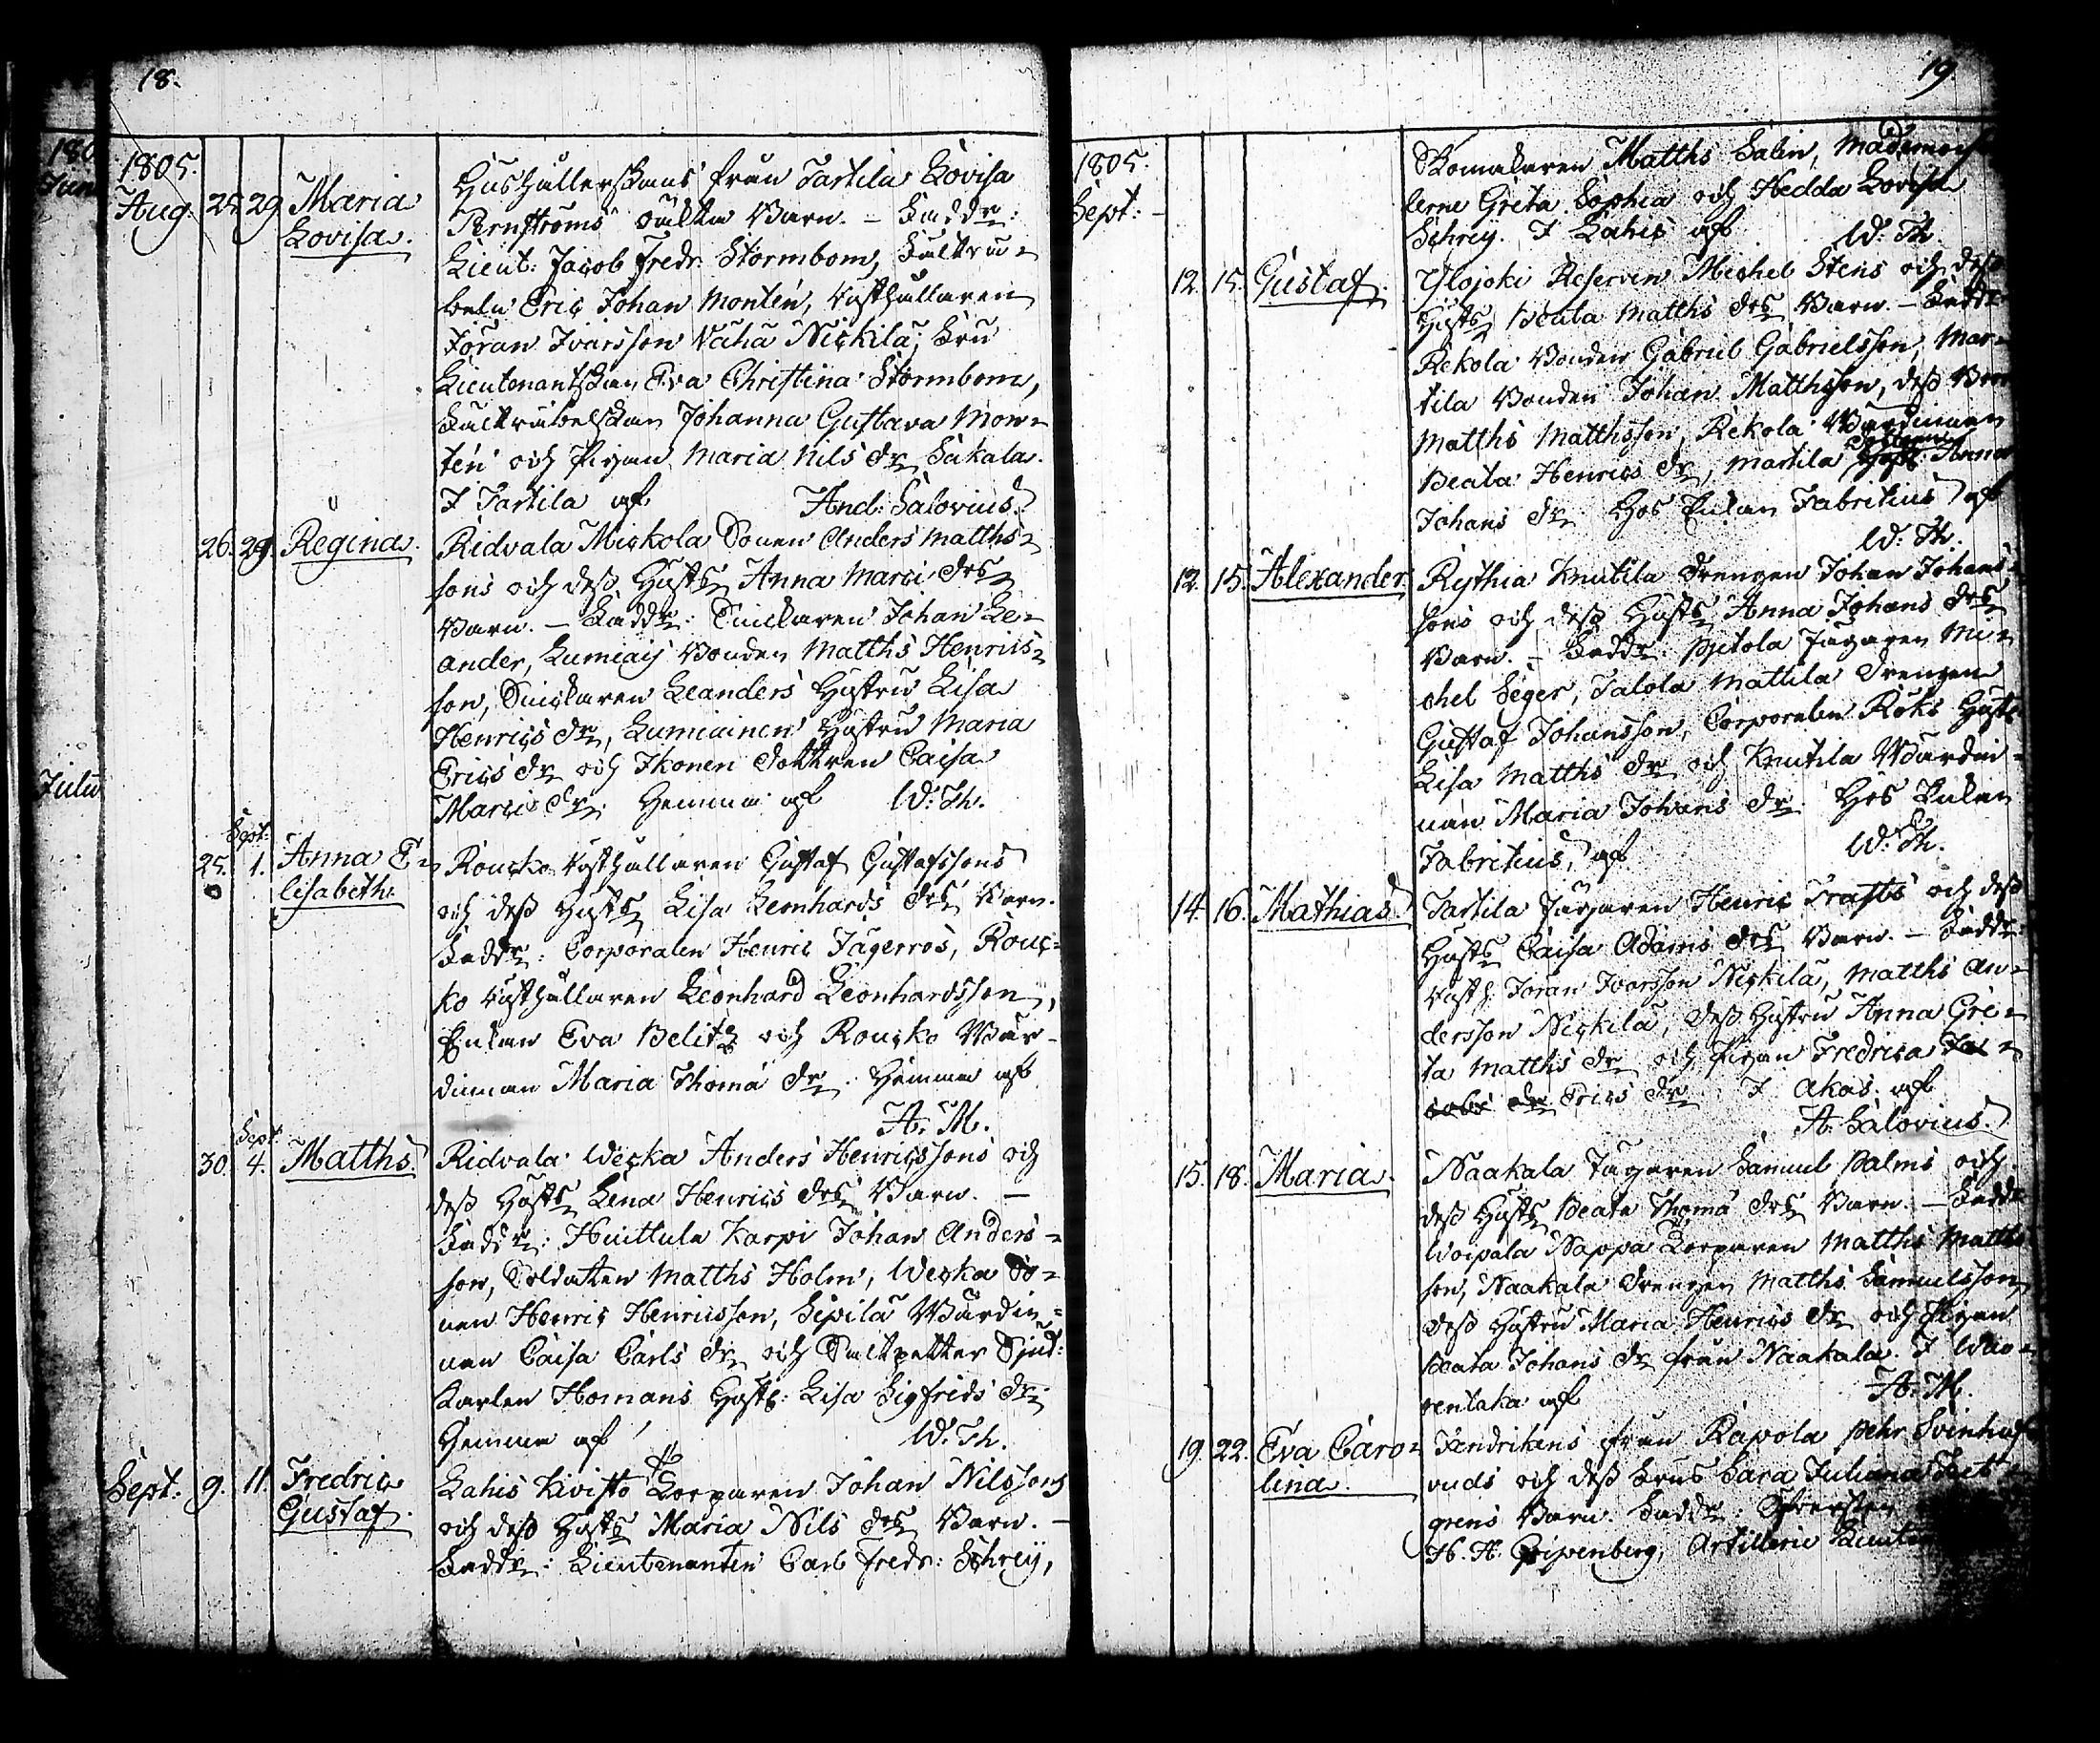 18.
1805.
Aug. 25. 29. Maria Lovisa.
Hushållerskans från Tartila Lovisa
Pernströms oäkta Barn. – Faddr:
Lieut: Jacob Fredr. Stormbom, Fältvä-
beln Eric Johan Montén, Rusthållaren
Jöran Ivarsson Vähä Nickilä, Fru
Lieutenantskan Eva Christina Stormbom,
Fältväbelskan Johanna Gustava Mon-
tén och Pigan Maria Nils dr Sukala.
I Tartila af And: Salovius.
26. 29. Regina.
Ridvala Mickola Sonen Anders Matths-
sons och dess Hustrs Anna Marci drs
Barn. – Faddr: Snickaren Johan Le-
ander, Lumiais Bonden Matths Henrics-
son, Snickaren Leanders Hustru Lisa
Henrics dr, Lumiainen Hustru Maria
Erics dr och Ikonen Dottren Caisa
Marci dr. Hemma af W: Th.
Sept:
25. 1. Anna E-
lisabeth.
Roucko Rusthållaren Gustaf Gustafssons
och dess Hustrs Lisa Leonhards drs Barn.
Faddr: Corporalen Henric Jägerroos, Rouc-
ko Rusthållaren Leonhard Leonhardsson,
Enkan Eva Belitz och Roucko Wär-
dinnan Maria Thomæ dr. Hemma af
A. M.
Sept:
30. 4. Matths.
Ridvala Wecka Anders Henricssons och
dess Hustrs Lena Henrics drs Barn. –
Faddr: Huittula Karpi Johan Anders-
son, Soldaten Matths Holm, Wecka So-
nen Henric Henricsson, Sipilä Wärdin-
nan Caisa Carls dr och Saltpetter Sjud-
karlen Homans Hustr: Lisa Sigfrids dr.
Hemma af W. Th.
Sept: 9. 11. Fredric
Gustaf.
Lahis Kivistö Torparen Johan Nilssons
och dess Hustrs Maria Nils drs Barn. –
Faddr: Lieutenanten Carl Fredr: Schreij,
19
1805.
Sept: –
Skomakaren Matths Salin, Mademoisel-
lerne Greta Sophia och Hedda Lovisa
Schreij. I Lahis af W: Th.
12. 15. Gustaf.
Ylojoki Reserven Michel Stens och dess
Hustrs Beata Matths drs Barn. – Faddr:
Rekola Bonden Gabriel Gabrielsson, Mar-
tila Bonden Johan Matthsson, dess Bror
Matths Matthsson, Rekola Wärdinnan
Beata Henrics dr, Martila Dottern Anna
Johans dr. Hos Enkan Fabritius af
W: Th.
12. 15. Alexander.
Rythia Knutila Drengen Johan Johans-
sons och dess Hustrs Anna Johans drs
Barn. – Faddr: Pjetola Jägaren Mi-
chel Seger, Jalola Mattila Drengen
Gustaf Johansson, Corporalen Röks Hustr
Lisa Matths dr och Knutila Wärdin-
nan Maria Johans dr. Hos Enkan
Fabritius, af W: Th.
14. 16. Mathias
Tartila Jägaren Henric Trasts och dess
Hustrs Caisa Adams drs Barn. – Faddr:
Rusth: Jöran Ivarsson Nickilä, Matths An-
dersson Nickilä, dess Hustru Anna Gre-
ta Matths dr och Pigan Fredrica Ja-
cobs dr Erics dr. I Akas af
A. Salovius.
15. 18. Maria.
Naakala Jägaren Samuel Palms och
dess Hustrs Beata Thomæ drs Barn. – Faddr:
Woipala Nappa Torparen Matths Matths-
son, Naakala Drengen Matths Samuelsson,
dess Hustru Maria Henrics dr och Pigan
Beata Johans dr från Naakala. I Wuo-
rentaka af A. M.
19. 22. Eva Caro-
lina.
Fendrikens från Rapola Pehr Svinhuf-
vuds och dess Frus Sara Juliana
grens Barn. Faddr: Öfversten
H. H. Gripenberg, Artillerie Lieuten